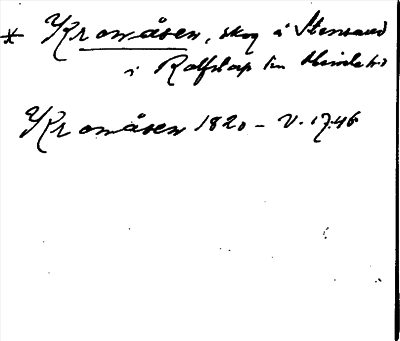 * Kronåsen, skog å Stensund
i Rolfstorp sn Himle hd
Kronåsen 1820 - V. 17.46